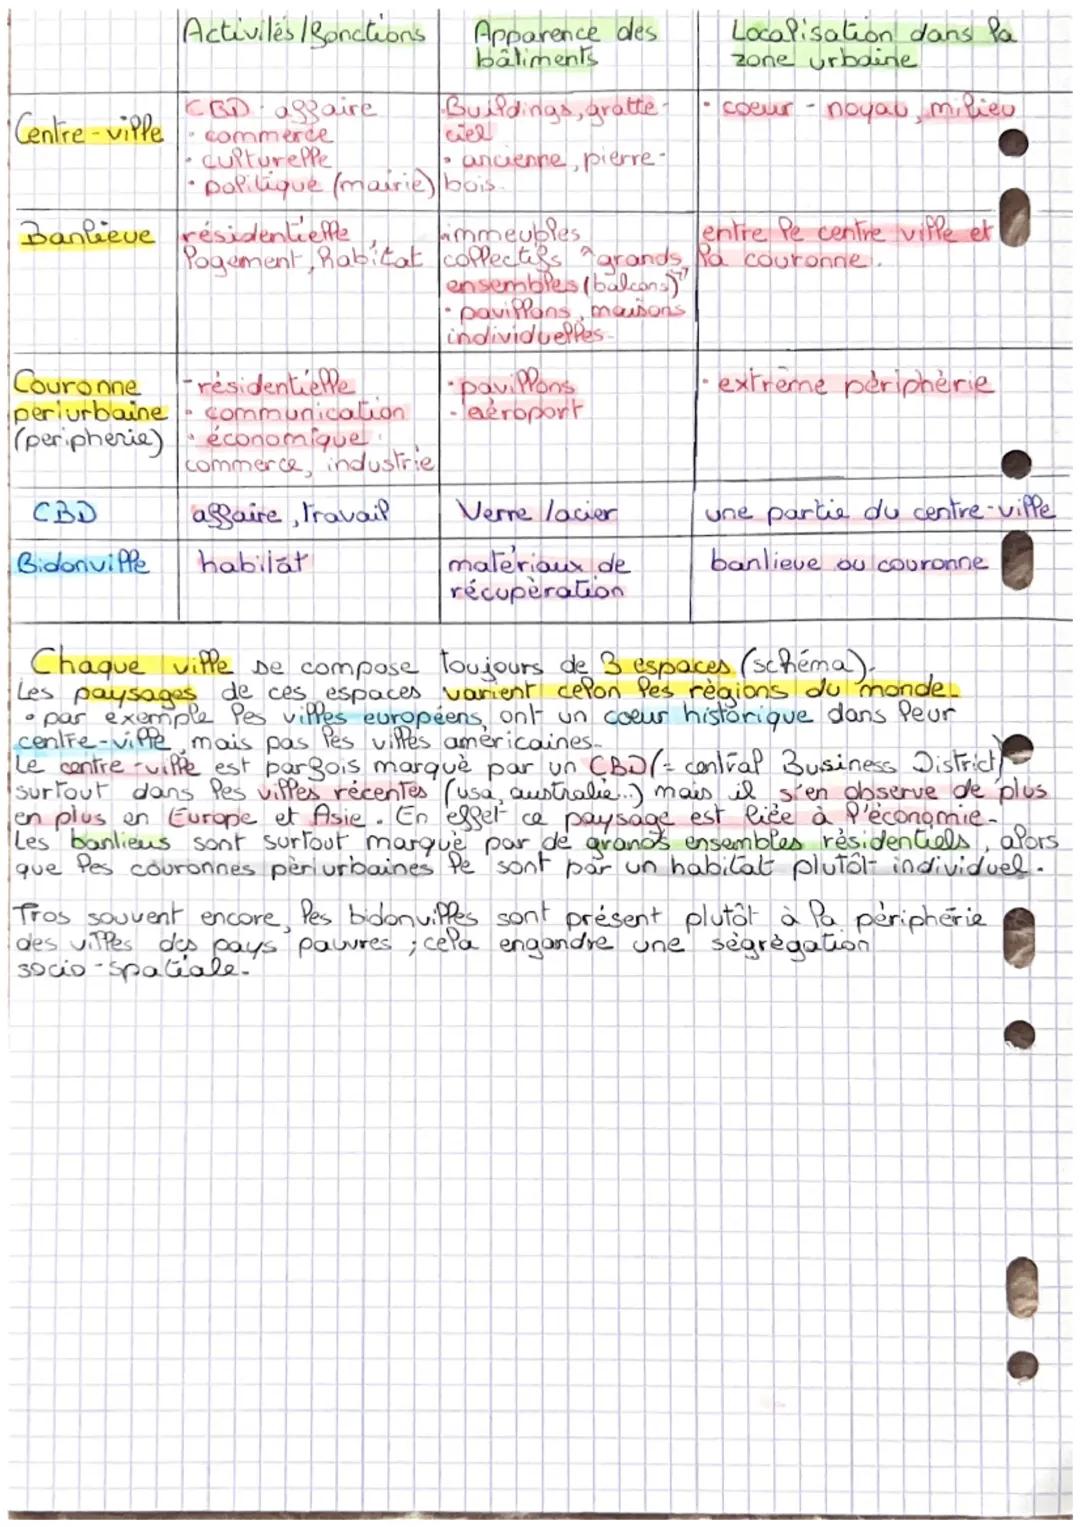 Activités/fonctions
Apparence des
bâtiments
Localisation dans la
zone urbaine
Centre-ville
CBD affaire
• commerce
• culturelle
• politique (mairie)
Buildings, gratte-
ciel
• ancienne, pierre-
bois.
• coeur - noyau, milieu
Banlieue
résidentielle,
logement, habitat
immeubles
collectifs "grands
ensembles (balcons)"
• pavillons, maisons
individuelles.
entre le centre ville et
la couronne.
Couronne
periurbaine
(peripherie)
- résidentielle
• communication
• économique
commerce, industrie
• pavillons
- aéroport
• extrème périphèrie
CBD
affaire, travail
Verre/acier
une partie du centre-ville
Bidonville
habitat
matériaux de
récupèration
banlieue ou couronne
Chaque ville se compose toujours de 3 espaces (schéma).
Les paysages de ces espaces varient celon les règions du monde.
• par exemple les villes européens, ont un coeur historique dans leur
centre-ville, mais pas les villes amèricaines.
Le centre-ville est parfois marquè par un CBD (= central Business District)
surtout dans les villes récentes (usa, australie...) mais il s'en observe de plus
en plus en Europe et Asie. En effet ce paysage est liée à l'économie.
Les banlieus sont surtout marquè par de grands ensembles rèsidentiels, alors
que les couronnes pèriurbaines le sont par un habitat plutôt individuel.
Tros souvent encore, les bidonvilles sont présent plutôt à la périphérie
des villes des pays pauvres ; cela engandre une sègrègation
socio-spatiale.